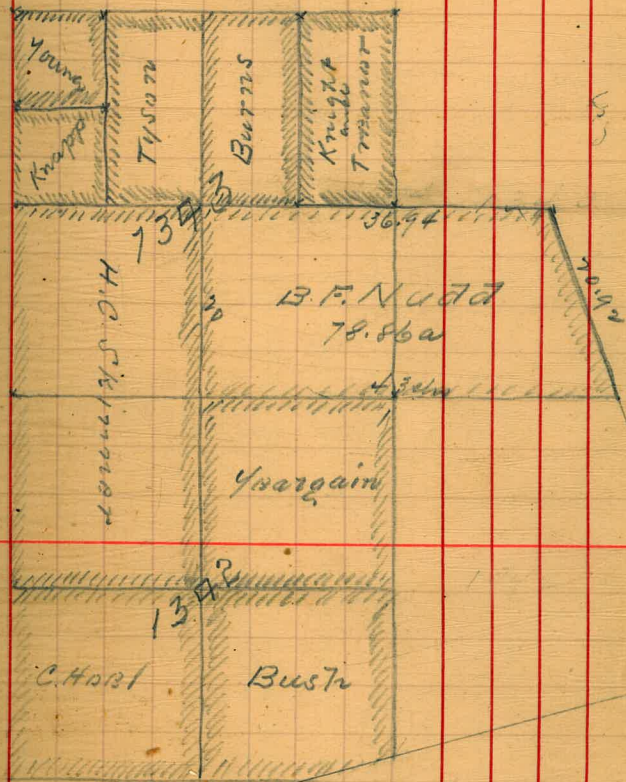 Young
Knapp
Tyson
Burns
Knight
and
Treanor
1343
36.94
20.92
H C Skinner
20
B. F. Nudd
78.86a
Yoargain
1342
C. Hobl
Bush